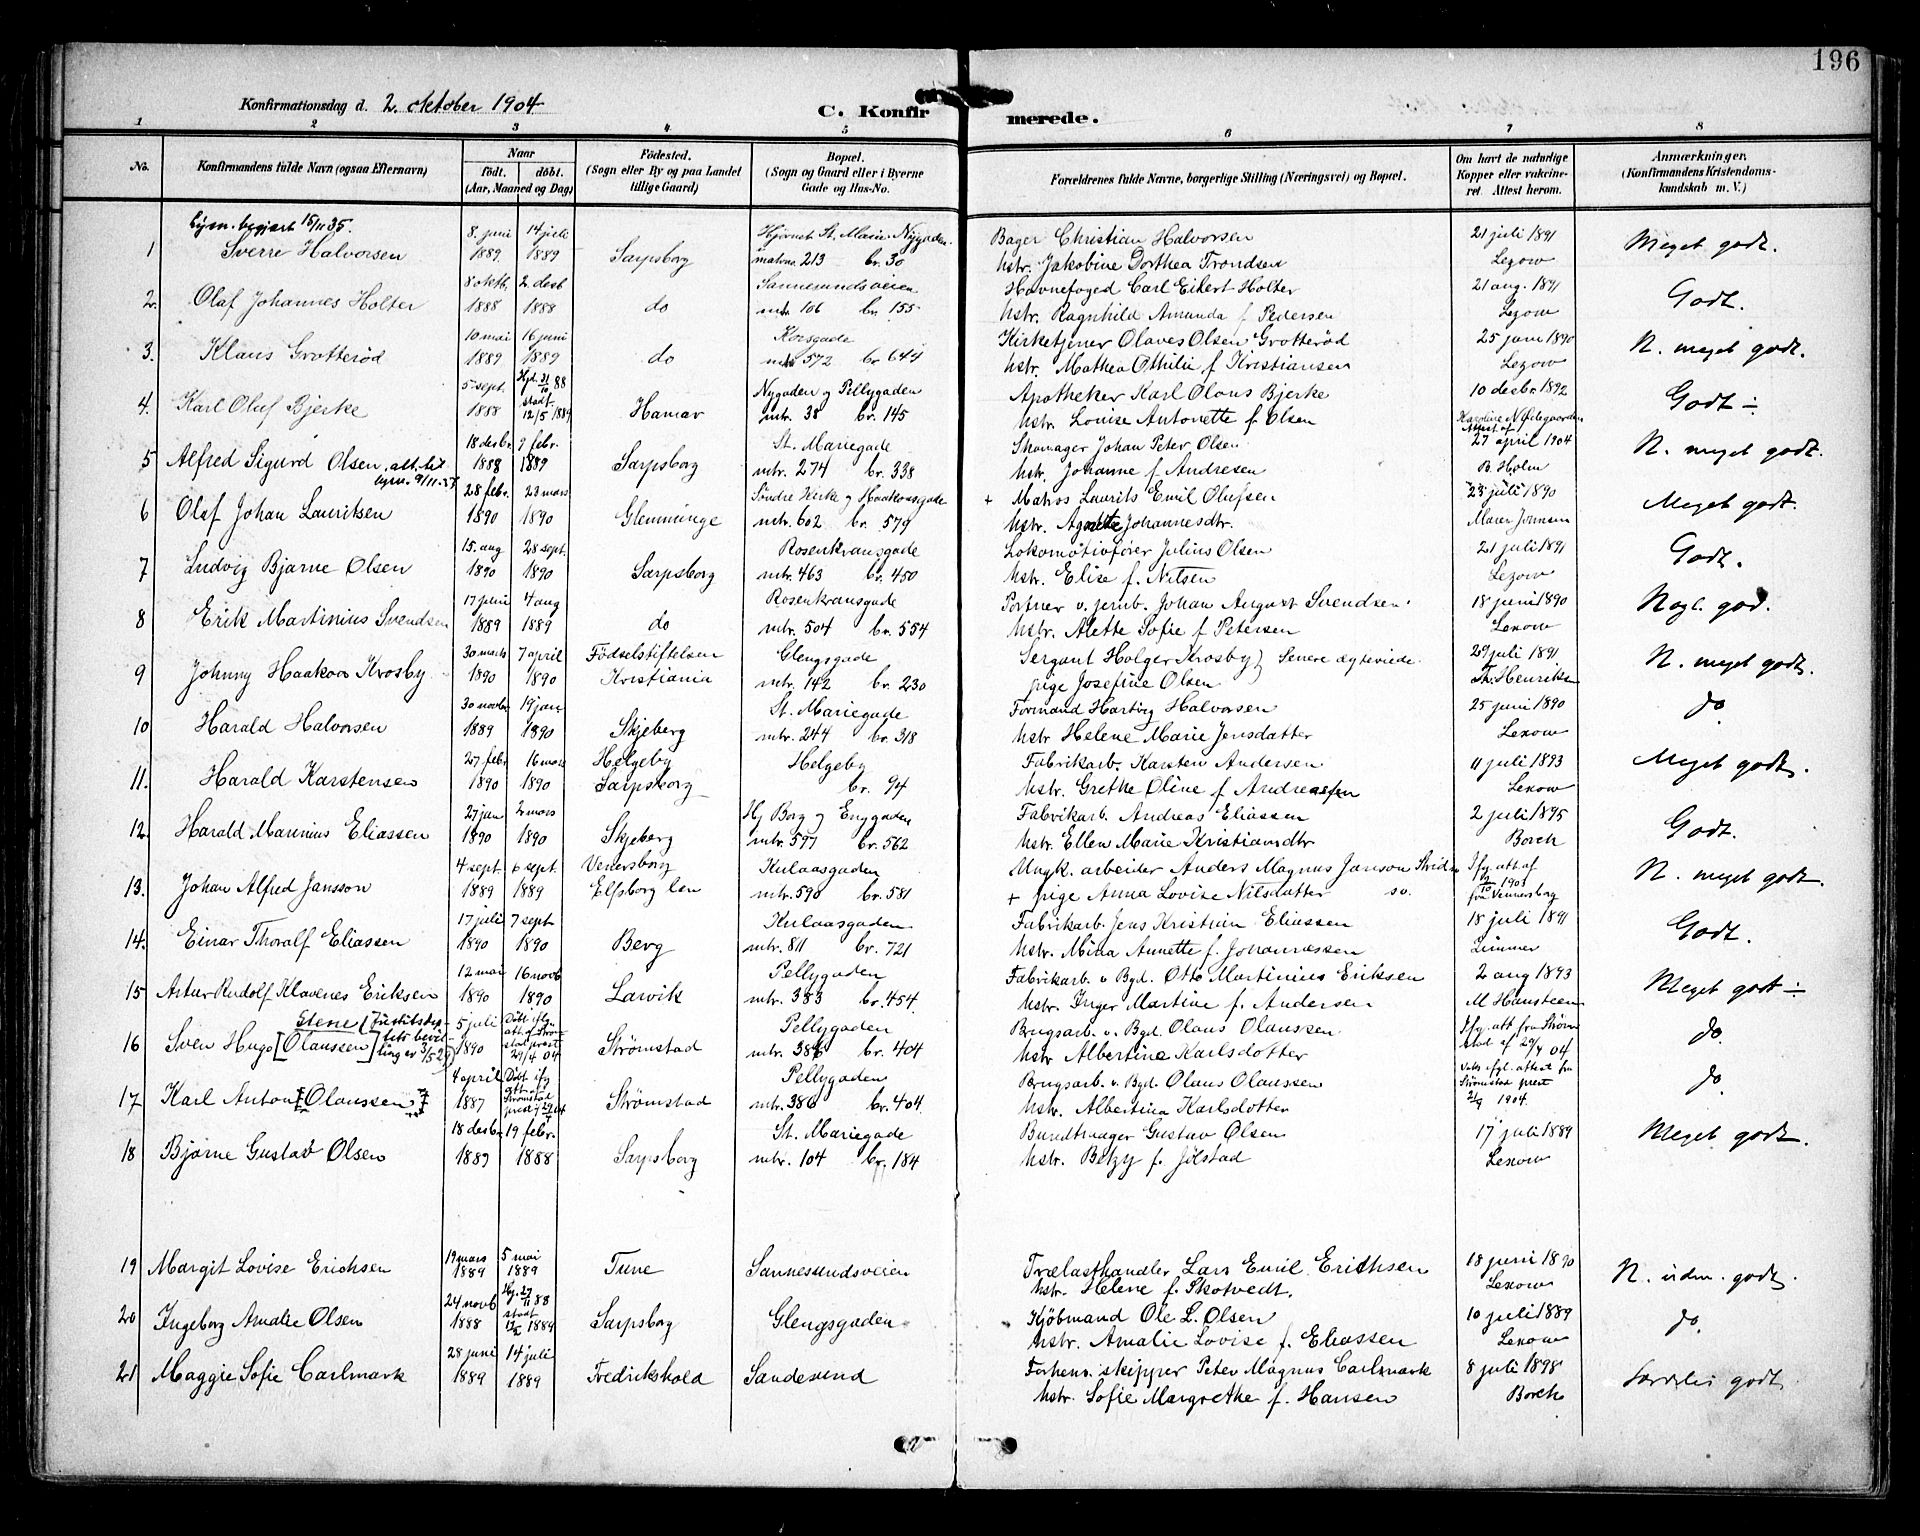 196
Konfirmationsdag d. 2. oktober 1904
C. Konfirmerede.
1 2 3 4 5 6 7 8
No. Konfirmandens fulde Navn (ogsaa Efternavn) Naar født. døbt. (Aar, Maaned og Dag) Fødested. (Sogn eller By og paa Landet tillige Gaard) Bopæl. (Sogn og Gaard eller i Byerne Gade og Hus-No.) Forældrenes fulde Navne, borgerlige Stilling (Næringsvei) og Bopæl. Om havt de naturlige Kopper eller vakcineret. Attest herom. Anmærkninger. (Konfirmandens Kristendomskundskab m. V.)
begjært 15/11 35.
8. juni 14 juli Hjørnet St. Marie-Nygaden Bager Christian Halvorsen 21 juli 1891
1 Sverre Halvorsen 1889 1889 Sarpsborg matrno. 213 br. 30 hstr. Jakobine Dorthea Trondsen Lexow Meget godt.
8 oktb. 2 desb Sannesundsveien Havnefoged Carl Eikert Holter 21 aug. 1891
2. Olaf Johannes Holter 1888 1888 do mtr 106 br. 155 hstr. Ragnhild Amanda f. Pedersen Lexow Godt.
10 mai 16 juni Korsgade Kirketjener Olaves Olsen Grotterød 25 juni 1890
3. Klaus Grotterød 1889 1889 do mtr 572 br 644 hstr. Mathea Othilie f. Kristiansen Lexow N. meget godt.
5 sept. Hjd. 31/10 88 Nygaden og Pellygaden Apotheker Karl Olaus Bjerke 10 desbr 1892
4. Karl Oluf Bjerke 1888 stadf. 12/5 1889 Hamar mtr. 38 br. 145 hstr. Louise Antonette f. Olsen Godt ÷
18 desbr. 9 febr. St. Mariegade Skomager Johan Peter Olsen Attest af 27 april 1904
5 Alfred Sigurd Olsen 1888 1889 Sarpsborg mtr. 274 br. 338 hstr. Johanne f. Andresen B. Holm N. meget godt.
28 febr. 23 mars Søndre Kirke og Haakonsgade + Matros Laurits Emil Olufsen 23 juli 1890
6 Olaf Johan Lauritsen 1890 1890 Glemminge mtr. 602 br. 579 hstr. Agnethe Johannesdtr. Meget godt.
15. aug 28 sept. Rosenkransgade Lokomotivfører Julius Olsen 21 juli 1891
7 Ludvig Bjarne Olsen 1890 1890 Sarpsborg mtr. 463 br. 450 hstr. Elise f. Nilsen Lexow Godt.
17 juni 4 aug Rosenkransgade Portner v. jernb. Johan August Svendsen 18 juni 1890
8 Erik Martinius Svendsen 1889 1889 do mtr. 504 br. 554 hstr. Alette Sofie f. Petersen Lexow Nogl. god.
30 marts 7 april Fødselsstiftelsen Glengsgade Sergant Holger Krosby } Senere ægteviede. 29 juli 1891
9 Johnny Haakon Krosby 1890 1890 Kristiania mtr. 142 br. 230 pige Josefine Olsen Th. Henriksen N. meget godt.
30 novbr 19 jan St. Mariegade Formand Hartvig Halvorsen 25 juni 1890
10 Harald Halvorsen 1889 1890 Skjeberg mtr. 244 br. 318 hstr Helene Marie Jensdatter Lexow do
27 febr 16 mars Helgeby Helgeby Fabrikarb. Karsten Andersen 11 juli 1893
11. Harald Karstensen 1890 1890 Sarpsborg br. 94 hstr. Grethe Oline f. Andreassen Lexow Meget godt.
27 jan 2 mars Hj Borg og Enggaden Fabrikarb. Andreas Eliassen 2 juli 1895
12. Harald Marinius Eliassen 1890 1890 Skjeberg mtr. 597 br. 562 hstr. Ellen Marie Kristiansdtr Borch Godt.
4 sept. 6 sept. Venersborg Kulaasgaden Uægk. arbeider Anders Magnus Janson Ifg. att. af
13. Johan Alfred Jansson 1889 1889 Elfsborg len mtr. 590 br. 581 + pige Anna Lovise Nilsdatter fra Vennersborg N. meget godt.
17 juli 7 sept Kulaasgaden Fabrikarb. Jens Kristian Eliassen 18 juli 1891
14. Einar Thoralf Eliassen 1890 1890 Berg mtr. 811 br. 721 hstr. Mina Annette f. Johannessen Godt.
12 mai 16 novb Pellygaden Fabrikarb. v Bgd. Otto Martinius Eriksen 2 aug 1893
15 Artur Rudolf Klavenes Eriksen 1890 1890 Larvik mtr. 383 br. 454 hstr. Inger Martine f. Andersen M Hansteen Meget godt ÷
Stene (Justitsdep- 5 juli Døbt iflg. att. af Strømstad prest 29/4 04 Pellygaden Brugsarb. v. Bgd. Olaus Olaussen Ifg. att fra Strømstad af 29/4 04
16 Sven Hugo [Olaussen] tets bevilling er 3/5 29) 1890 Strømstad mtr. 386 br. 404 hstr Albertine Karlsdotter do
4 april Døbt ifg att af Strømstad Pellygaden Brugsarb. v. Bgd. Olaus Olaussen attest fra Strømstad prest
17 Karl Anton [Olaussen] 1887 Strømstad mtr. 386 br. 404. hstr. Albertina Karlsdotter 1904. do
18 desbr. 19 febr. St. Mariegade Bundtmager Gustav Olsen 17 juli 1889
18 Bjarne Gustav Olsen 1889 1888 Sarpsborg mtr. 104 br. 184 hstr. Betzy f. Jølstad Lexow Meget godt.
19 mars 5 mai Trælasthandler Lars Emil Erichsen 18 juni 1890
19 Margit Lovise Erichsen 1889 1889 Tune Sannesundsveien hstr. Helene f. Skotvedt. Lexow N. udm. godt.
24 novb Hj. 27/11 88 Kjøbmand Ole L. Olsen 10 juli 1889
20 Ingeborg Amalie Olsen 1888 stadf 1889 Sarpsborg Glengsgaden hstr. Amalie Lovise f. Eliassen Lexow do.
28 juni 14 juli Forhenv. skipper Peter Magnus Carlmark 8 juli 1898
21 Maggie Sofie Carlmark 1889 1889 Fredrikshald Sandesund hstr. Sofie Margrethe f. Hansen Borch Særdeles godt